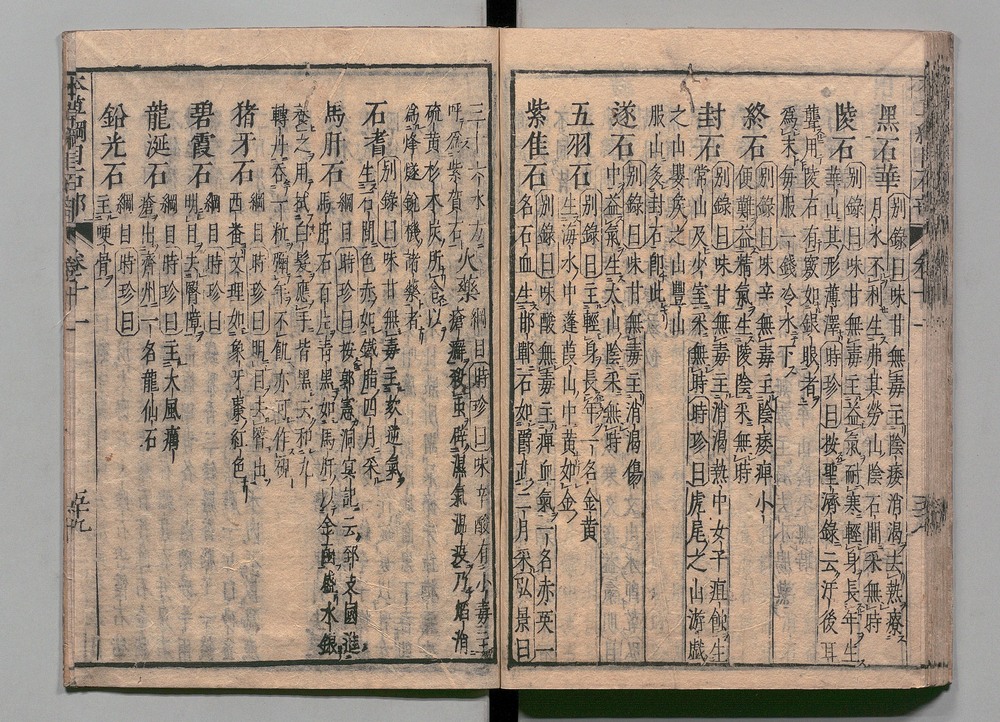 黑石華 別錄曰味甘無毒主陰痿消渴去熱療
月水不利生弗其勞山陰石間采無時
陵石 別錄曰味甘無毒主益氣耐寒輕身長年生
華山其形薄澤 時珍曰按聖濟錄云汗後耳
聾用陵石有竅如銀眼者
爲末每服一錢冷水下
終石 別錄曰味辛無毒主陰痿痺小
便難益精氣生陵陰采無時
封石 別錄曰味甘無毒主消渴熱中女子疽蝕生
常山及少室采無時 時珍曰虎尾之山游戲
之山嬰矦之山豐山
服山多封石卽此
遂石 別錄曰味甘無毒主消渴傷
中益氣生太山陰采無時
五羽石 別錄曰主輕身長年一名金黃
生海水中蓬葭山中黃如金
紫佳石 別錄曰味酸無毒主痺血氣一名赤英一
名石血生邯鄲石如爵茈二月采弘景曰
三十六水方
呼爲紫賀石
火藥 綱目 時珍曰味辛酸有小毒主
瘡癬殺蟲辟濕氣溫疫乃焰消
硫黃杉木炭所合以
爲烽燧銃機諸藥者
石耆 別錄曰味甘無毒主欬逆氣
生石間色赤如鐵脂四月采
馬肝石 綱目 時珍曰按郭憲洞冥記云郅支國進
馬肝石百片靑黑如馬肝以金函盛水銀
養之用拭白髮應手皆黑云和九
轉丹吞一粒彌年不飢亦可作硯
猪牙石 綱目 時珍曰明目去醫出
西番文理如象牙棗紅色
碧霞石 綱目 時珍曰
明目去醫障
龍涎石 綱目 時珍曰主大風癘
瘡出齊州一名龍仙石
鉛光石 綱目 時珍曰
主哽骨
本草綱目石部 卷十一 五十九